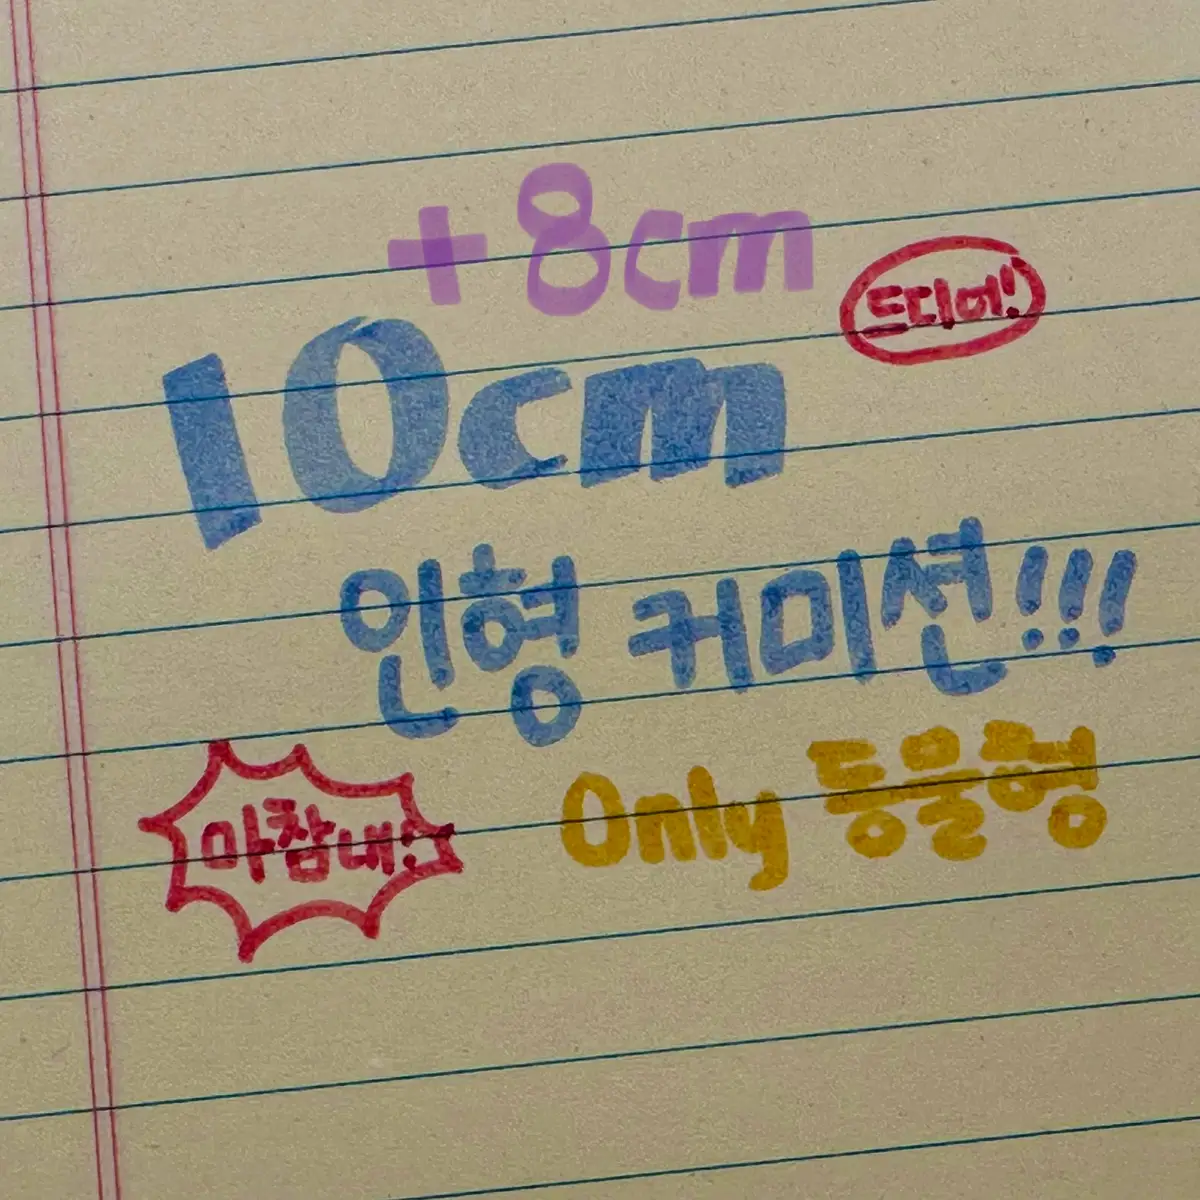 +8cm
드디어!
10cm
인형 커미션!!!
마참내!
Only 동물형